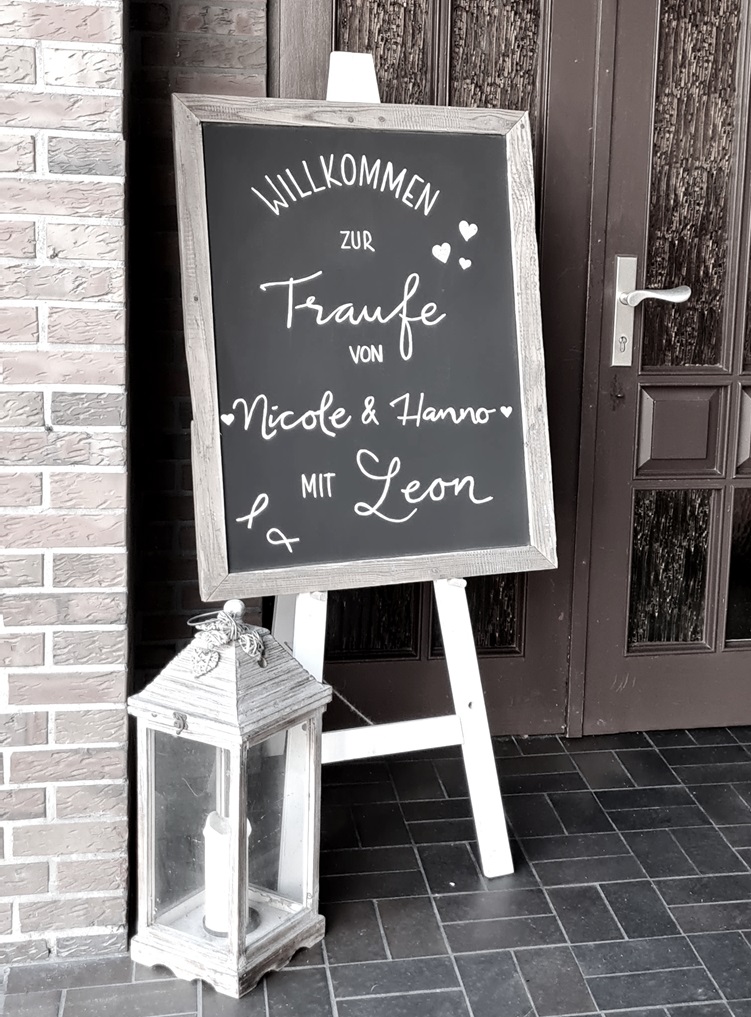 WILLKOMMEN
ZUR
Traufe
VON
Nicole & Hanno
MIT Leon